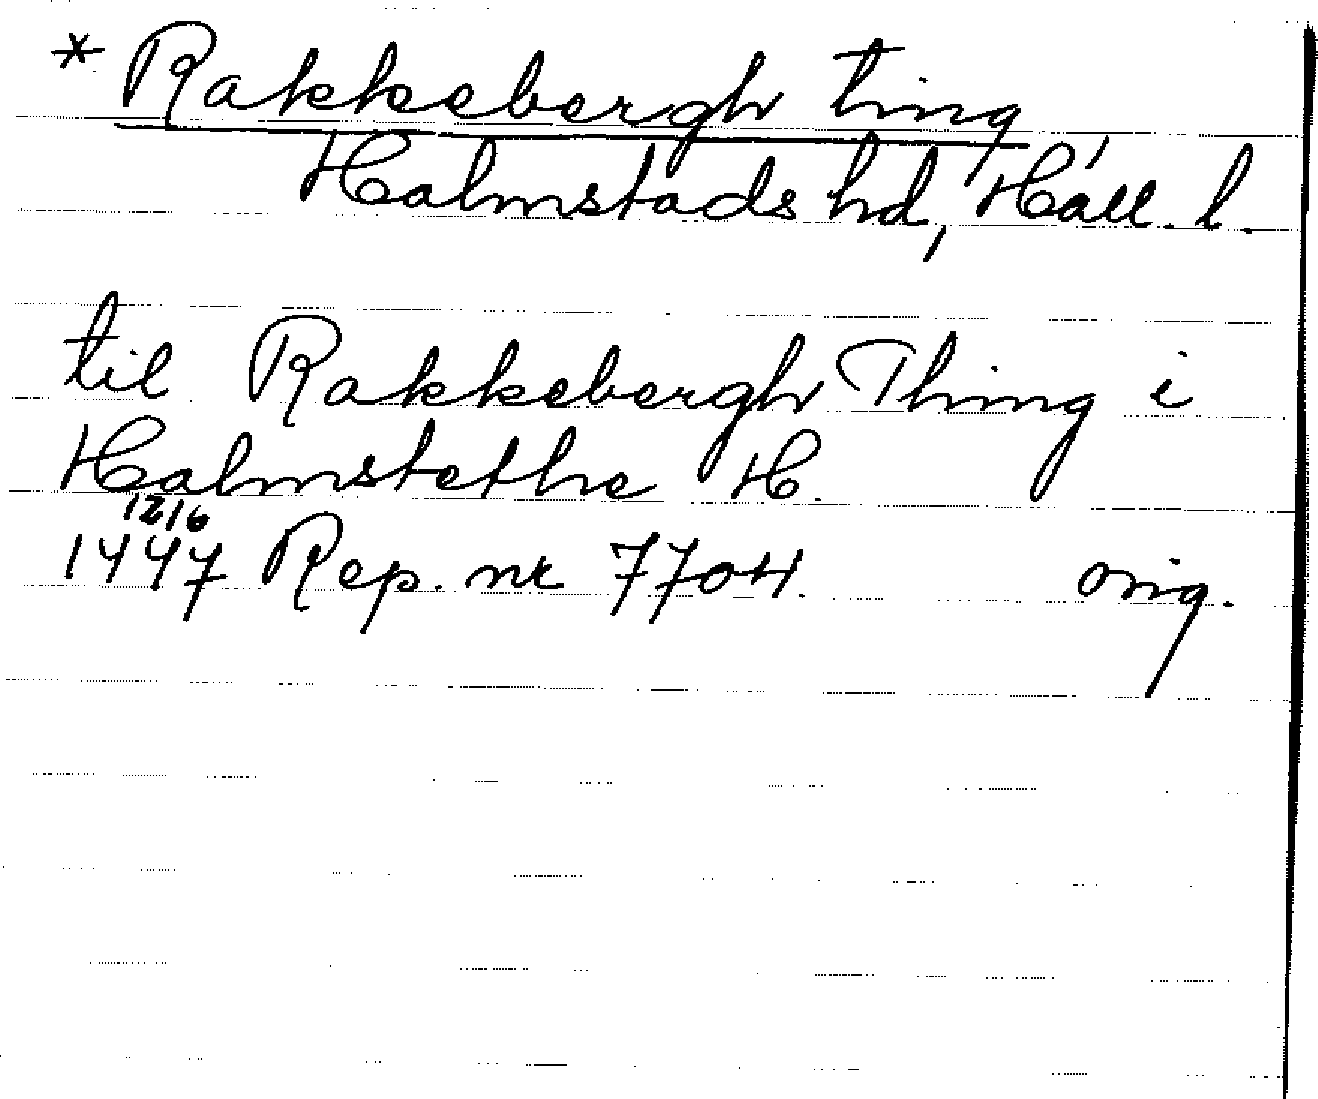 * Rakkebergh ting
Halmstads hd, Hall. l.
til Rakkebergh Thing i
Halmstethe H.
12/6
1447 Rep. nr 7704. orig.